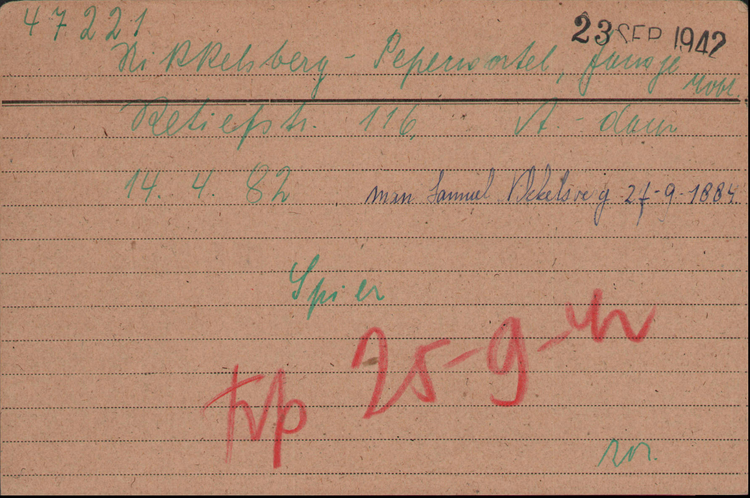 47221
23 SEP 1942
Nikkelsberg - Peperwortel, Jansje
Retiefstr. 116, A-dam
14. 4. 82 man Samuel Nikkelsberg 27-9-1884
Spier
trp 25-9-42